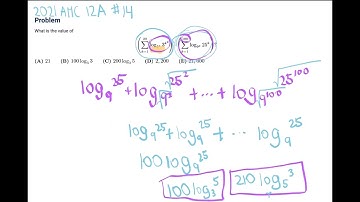 2021 AMC 12A #14
Problem
What is the value of
(∑ log₅ₖ 3ᵏ²) · (∑ log₉ₖ 25ᵏ)?
(A) 21 (B) 100 log₅ 3 (C) 200 log₃ 5 (D) 2,200 (E) 21,000
log₉ 25 + log_√9² √25² + ... + log_√9¹⁰⁰ √25¹⁰⁰
log₉ 25 + log₉ 25 + ... log₉ 25
100 log₉ 25
100 log₃ 5 210 log₅ 3